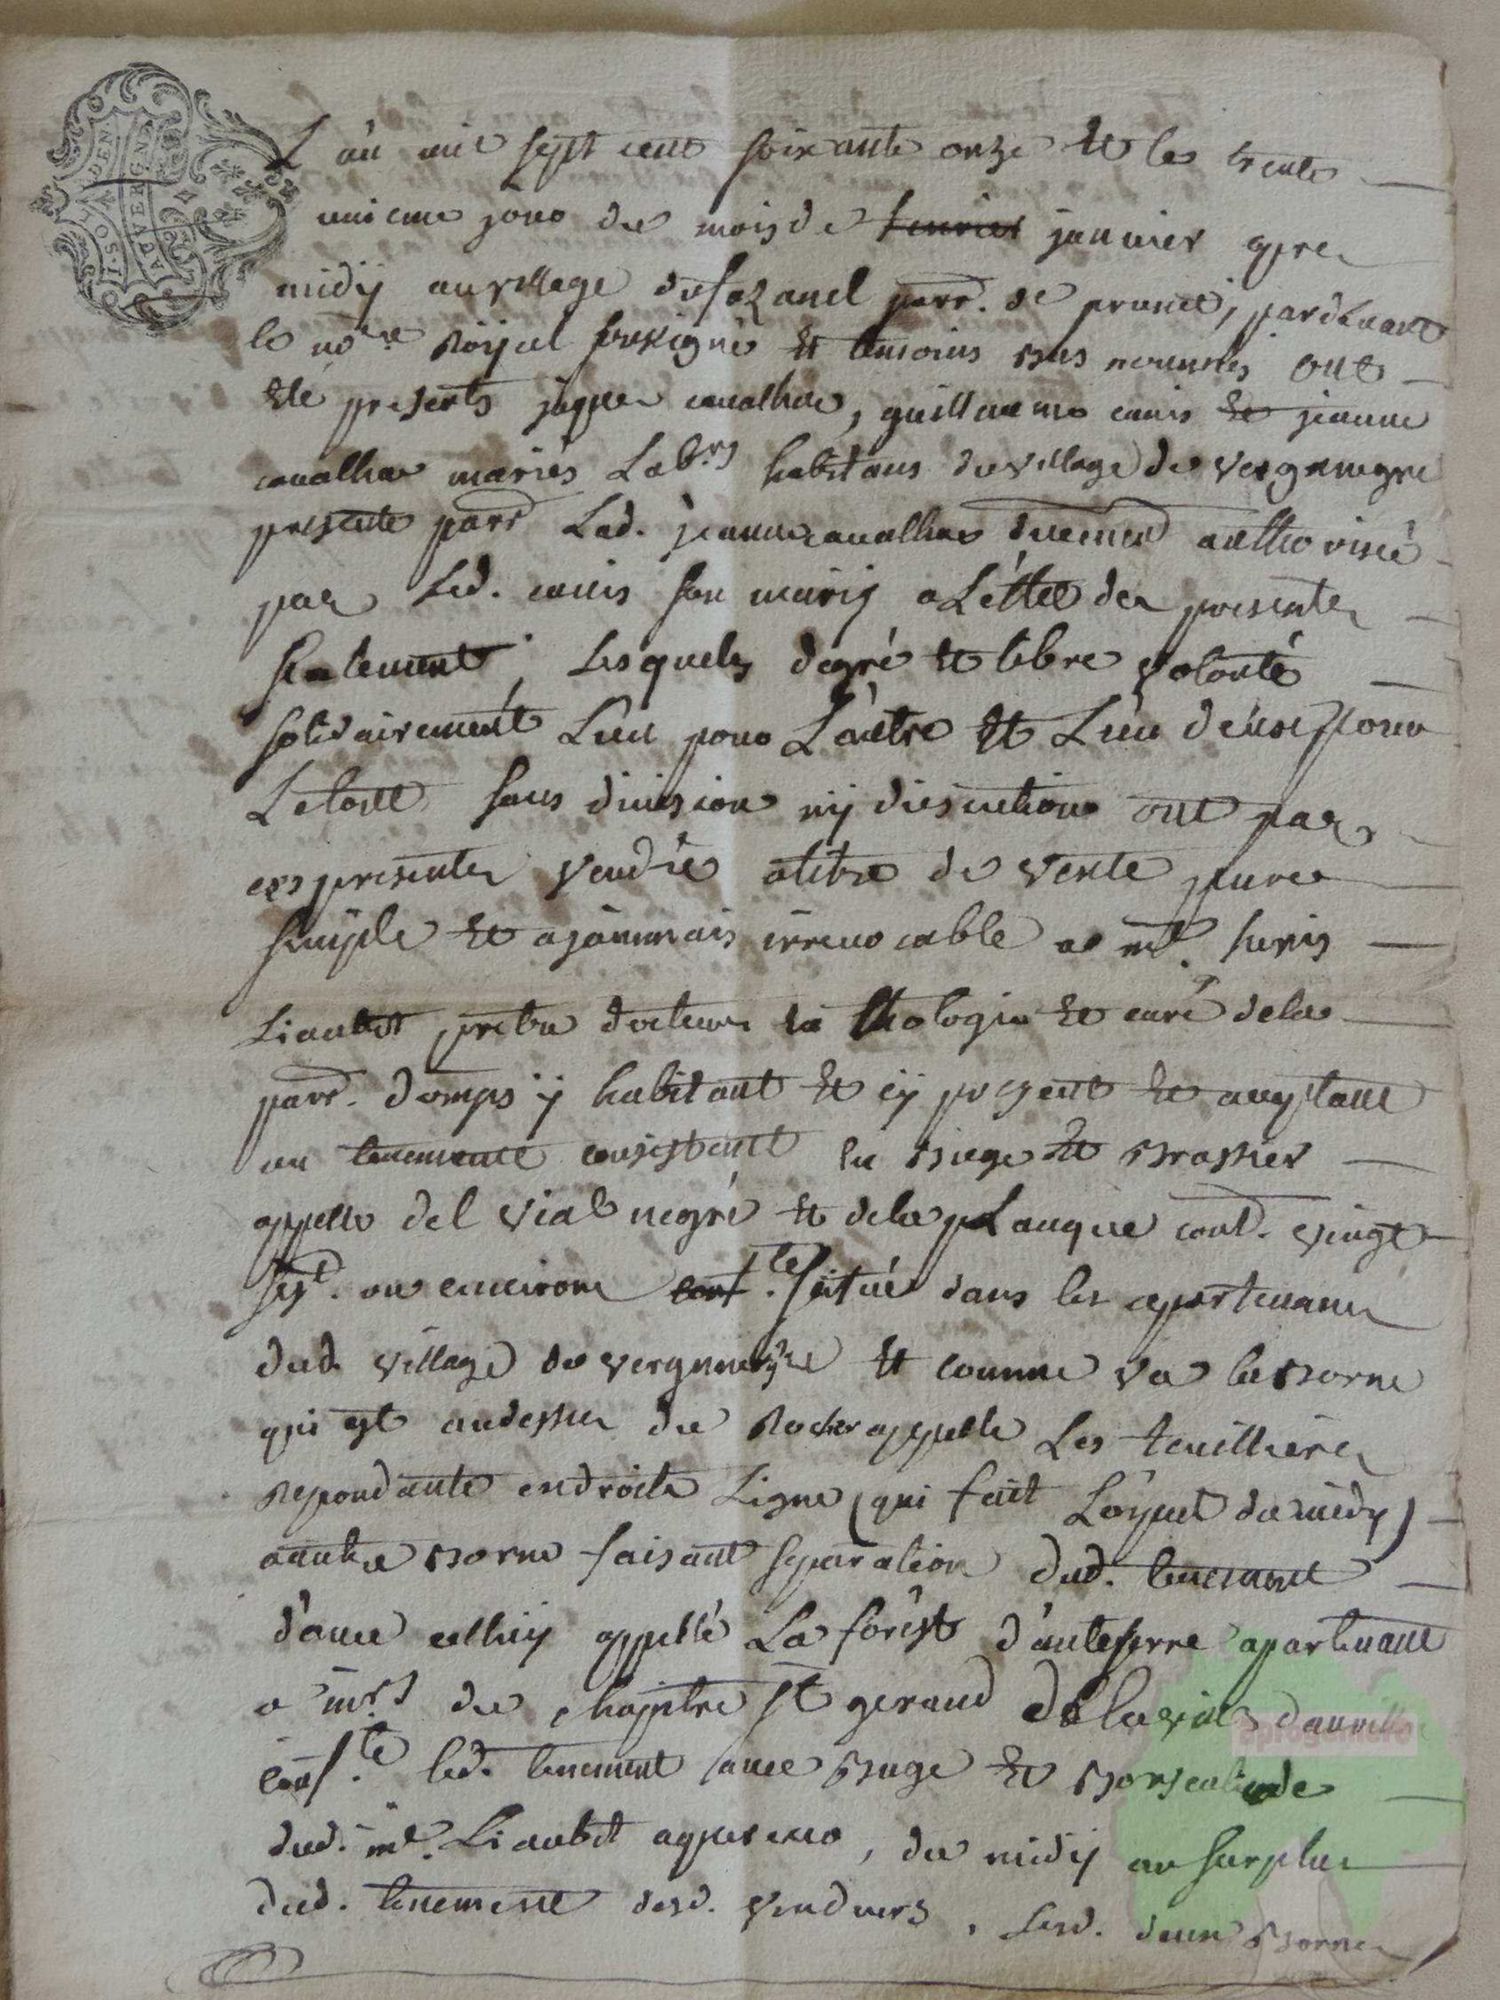 L'an mil sept cent soixante onze et le trente
unieme jour du mois de fevrier janvier apres
midy au village du fazanel parr. de prunet, pardevant
le nore Royal soussigné et temoins bas nommés ont
eté presents jaques cavalhac, guillaume canis et jeanne
cavalhac mariés Labrs habitans du village de vergnenegre
presente parr Lad. jeanne cavalhac duement authorisée
par Led. canis son mary a L'effet des presentes
seulement, Lesquels degré et libre volonté
solidairement L'un pour L'autre et L'un d'eux pour
Le tout sans division ny discution ont par
ces presentes vendu a titre de vente pure
simple et a jammais irrevocable a me.
Liaubet pretre docteur en theologie et curé de la
parr. d'omps y habitant et cy present et acceptant
un tenement consistant en buge et brassier
appellé del vial negré et de la planque cont. vingt
sept. ou environ conf.te situé dans les apartenances
dud. village de vergnenegre et comme va la borne
qui est audessus du Rocher appellé Les teuillieres
Repondante en droite Ligne (qui fait L'aspect du midy)
autre borne faisant separation dud. tenement
d'avec celluy appellé La forest d'auteserre apartenant
a mrs du chapitre st geraud de la ville d'aurillac
conf.te led. tenement avec buge et
dud. me. Liaubet aquereur, du midy au surplus
dud. tenement desd. vendeurs, Lesd. deux bornes
T.ST.SOLS.DEN.
AUVERGNE
aprogemere